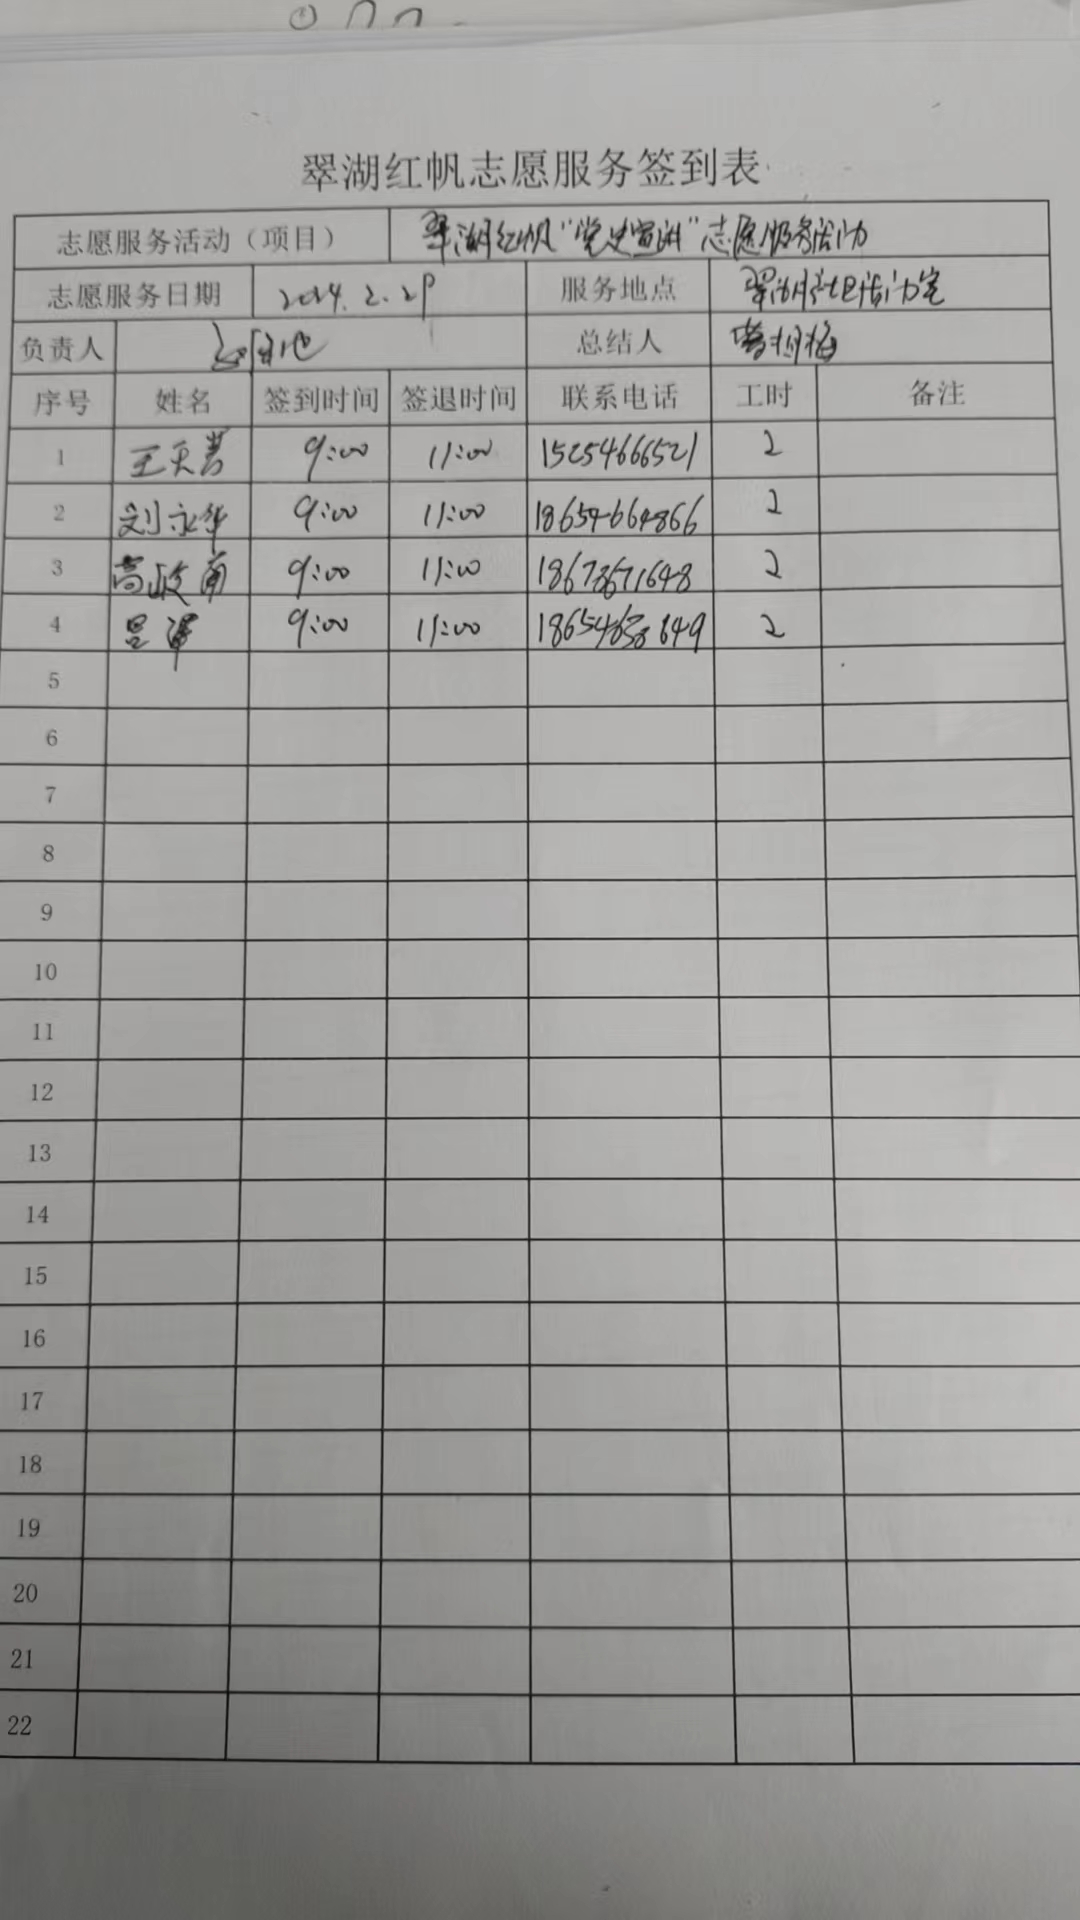 翠湖红帆志愿服务签到表
志愿服务活动（项目） 翠湖红帆“党史宣讲”志愿服务活动
志愿服务日期 2024.2.29 服务地点 翠湖社区活动室
负责人 总结人
序号 姓名 签到时间 签退时间 联系电话 工时 备注
1 9:00 11:00 15254666521 2
2 刘永华 9:00 11:00 18654664866 2
3 高岐南 9:00 11:00 18678671648 2
4 9:00 11:00 2
5
6
7
8
9
10
11
12
13
14
15
16
17
18
19
20
21
22